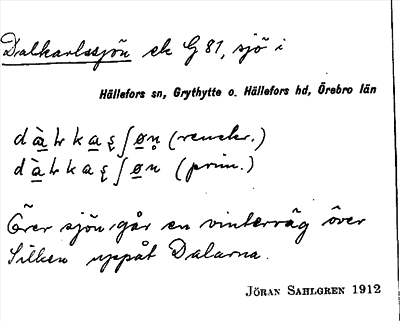 Dalkarlssjön ek G 81, sjö i
Hällefors sn, Grythytte o. Hällefors hd, Örebro län
(renskr.)
(prim.)
Över sjön går en vinterväg över
Silken uppåt Dalarna.
JÖRAN SAHLGREN 1912